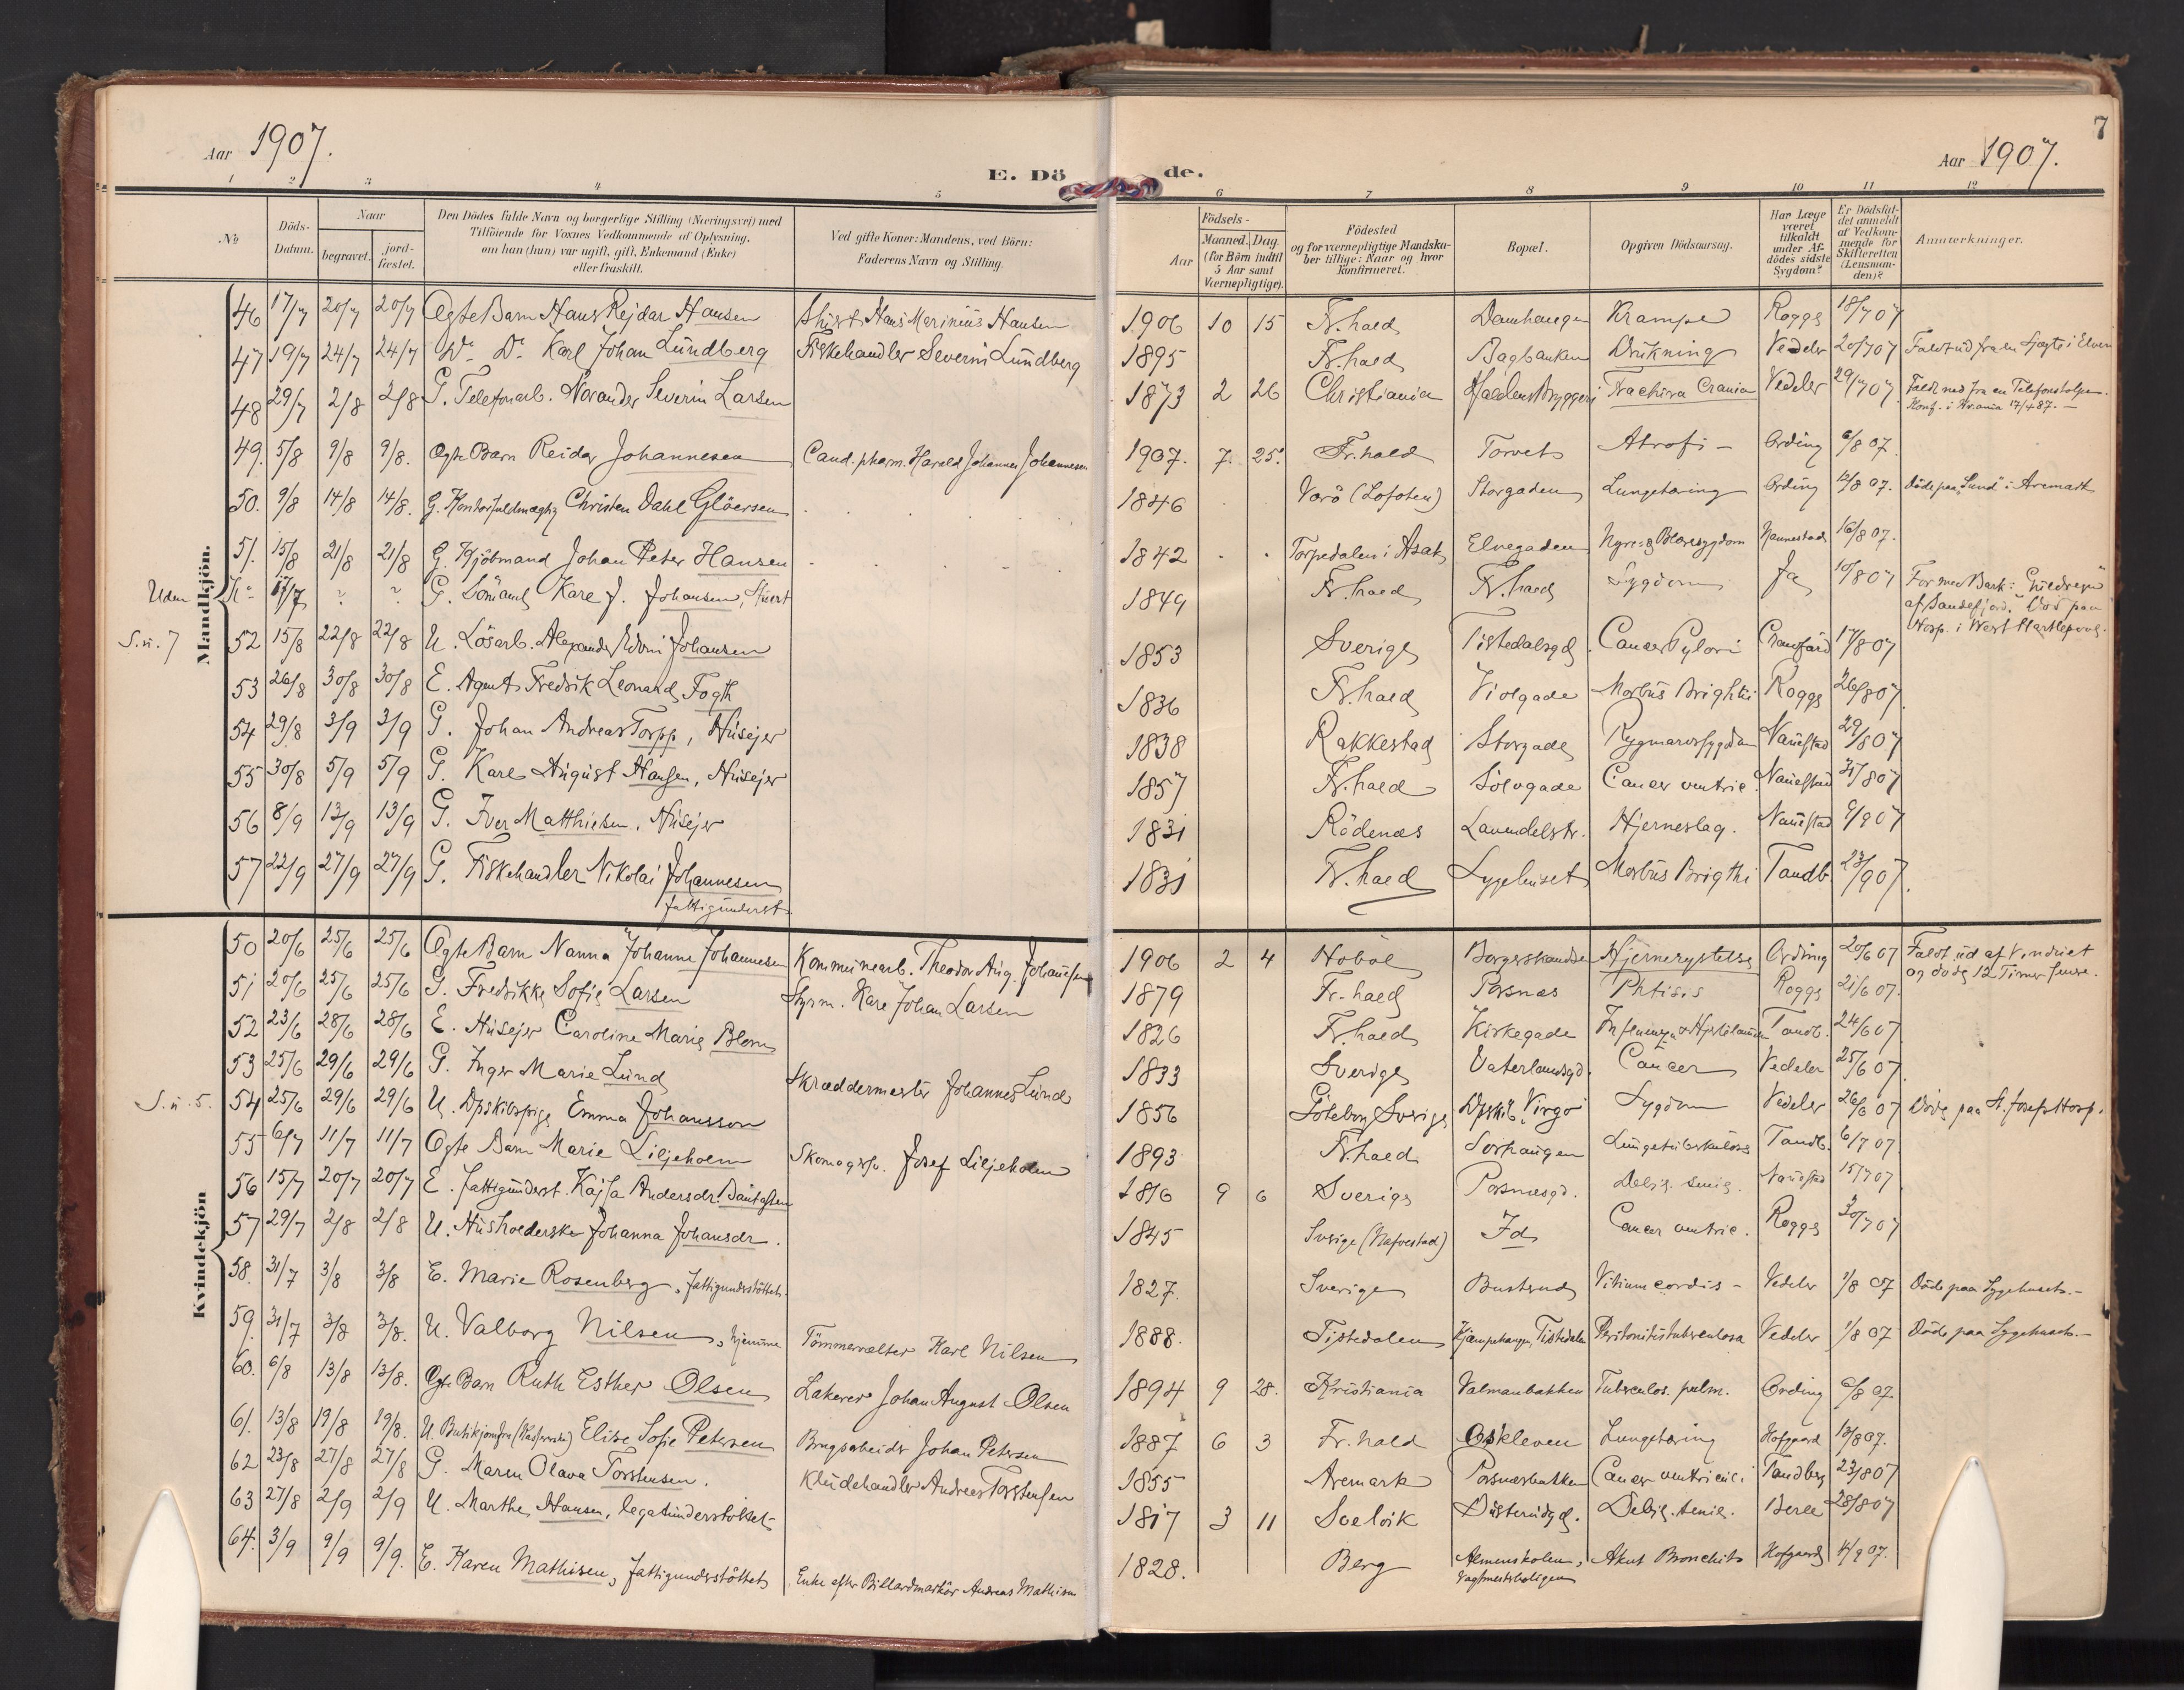 Aar 1907.
E. Dö
de.
Aar 1907.
7
1 2 3 4 5 6 7 8 9 10 11 12
No
Döds-Datum.
Naar
begravet.
jord-fæstet.
Den Dödes fulde Navn og borgerlige Stilling (Næringsvei) med
Tilföiende for Voxnes Vedkommende af Oplysning,
om han (hun) var ugift, gift, Enkemand (Enke)
eller fraskilt.
Ved gifte Koner: Mandens, ved Börn:
Faderens Navn og Stilling.
Födsels-
Aar
Maaned. Dag.
(for Börn indtil
5 Aar samt
Værnepligtige).
Födested
og for værnepligtige Mandska-
ber tillige: Naar og hvor
konfirmeret.
Bopæl.
Opgiven Dödsaarsag.
Har Læge
været
tilkaldt
under Af-
dödes sidste
Sygdom?
Er Dödsfal-
det anmeldt
af Vedkom-
mende for
Skifteretten
(Lensman-
den)?
Anmærkninger.
Mandkjön.
46 17/7 20/7 20/7 Ægte Barn Hans Rejdar Hansen Hans Marinius Hansen 1906 10 15 Fr.hald Damhaugen Krampe Rogge 18/7 07
47 19/7 24/7 24/7 Do Do Karl Johan Lundberg Fiskehandler Severin Lundberg 1895 Fr.hald Bagbanken Drukning Vedeler 20/7 07 Faldt ud fra en Sjægte i Elven
48 29/7 2/8 2/8 G. Telefonarb. Novander Severin Larsen 1873 2 26 Christiania Haldens Bryggeri Fractura Crania Vedeler 29/7 07. Faldt ned fra en Telefonstolpe.
Konf. i Kr.ania 17/4 87. —
49. 5/8 9/8 9/8. Ægte Barn Reidar Johannesen Cand. pharm. Harald Johannes Johannesen 1907. 7. 25. Fr.hald Torvet Atrofi – Ording 6/8 07.
50. 9/8 14/8 14/8. G. Kontorfuldmægtig Christen Dahl Glöersen 1846 Værö (Lofoten) Storgaden Lungetæring Ording 12/8 07. Döde paa "Sund" i Aremark
51. 15/8 21/8 21/8 G. Kjöbmand Johan Peter Hansen 1842 Torpedalen i Asak Elvegaden Nyre- & Blæresygdom Nannestad 16/8 07.
Uden No 17/7 ? ? G. Sömand Karl J. Johansen, Stuert 1849 Fr.hald Fr.hald Sygdom Ja 10/8 07 For med Bark: "Guldregn"
af Sandefjord. Död paa
Hosp. i West Hartlepool.
S. n. 7 52 15/8 22/8 22/8 U. Lösarb. Alexander Edvin Johansen 1853 Sverige Tistedalsgd. Cancer Pylori Cranfård 17/8 07
53 26/8 30/8 30/8 E. Agent Fredrik Leonard Fogth 1836 Fr.hald Violgade Morbus Brightii Rogge 26/8 07
54 29/8 3/9 3/9 G. Johan Andreas Torpp, Husejer 1838 Rakkestad Storgade Rygmarvssygdom Nannestad 29/8 07
55 30/8 5/9 5/9 G. Karl August Hansen, Husejer 1857 Fr.hald Sölvgade Cancer ventric. Nannestad 31/8 07
56 8/9 13/9 13/9 G. Iver Matthiesen, Husejer 1831 Rödenæs Lavendelstr. Hjerneslag. Nannestad 9/9 07
57 22/9 27/9 27/9 G. Fiskehandler Nikolai Johannesen
fattigunderst. 1831 Fr.hald Sygehuset Morbus Brigthi Tandb. 23/9 07.
Kvindekjön
50 20/6 25/6 25/6 Ægte Barn Nanna Johanne Johannesen Kommunearb. Theodor Aug. Johannesen 1906 2 4 Hobøl Borgerskandse Hjernerystelse Ording 20/6 07 Faldt ud af Vinduet
og döde 12 Timer senere.
51 20/6 25/6 25/6 G. Fredrikke Sofie Larsen Styrm. Karl Johan Larsen 1879 Fr.hald Porsnæs Phtisis Rogge 21/6 07.
52 23/6 28/6 28/6 E. Husejer Caroline Marie Blom 1826 Fr.hald Kirkegade Influenza & Hjertelamhed Tandb. 24/6 07
53 25/6 29/6 29/6 G. Inger Marie Lund Skræddermester Johannes Lund 1833 Sverige Vaterlandsgd. Cancer Vedeler 25/6 07.
S. n. 5. 54 25/6 29/6 29/6 U. Dpskibspige Emma Johansson 1856 Göteborg Sverige Dpskib. Virgo Sygdom Vedeler 26/6 07 Döde paa St. Josefs Hosp.
55 6/7 11/7 11/7 Ægte Barn Marie Liljeholm Skomagersv. Josef Liljeholm 1893 Fr.hald Sorhaugen Lungetuberkulose Tandb. 6/7 07.
56 15/7 20/7 20/7 E. fattigunderst. Kajsa Andersdr. 1816 9 6 Sverige Porsnæsgd. Debil. senil. Nannestad 15/7 07
57 29/7 2/8 2/8 U. Husholderske Johanna Johansdr. 1845 Sverige (Nafvestad) Id Cancer ventric. Rogge 30/7 07
58. 31/7 3/8 3/8 E. Marie Rosenberg, fattigunderstöttet. 1827. Sverige Busterud Vitium cordis – Vedeler 1/8 07 Döde paa Sygehuset. –
59. 31/7 3/8 3/8. U. Valborg Nilsen, hjemme Tömmervælter Karl Nilsen 1888. Tistedalen Kjæmpehaugen, Tistedalen Peritonitis tuberculosa Vedeler 1/8 07 Döde paa Sygehuset. –
60. 6/8 13/8 13/8. Ægte Barn Ruth Esther Olsen Lakerer Johan August Olsen 1894 9 28. Kristiania Valmanbakken Tuberculos. pulm. Ording 6/8 07.
61. 13/8 19/8 19/8. U. Butikjomfru (Kasserske) Elise Sofie Petersen Brugsarbeider Johan Petersen 1887 6 3 Fr.hald Oskleven Lungetæring Hofgaard 13/8 07.
62 23/8 27/8 27/8 G. Maren Olava Torstensen. Kludehandler Andreas Torstensen 1855 Aremark Porsnæsbakken Cancer ventriculi Tandberg 23/8 07
63 27/8 2/9 2/9 U. Marthe Hansen, legatunderstöttet 1817 3 11 Svelvik Busterudgd. Debil. senil. Berle 28/8 07
64. 3/9 9/9 9/9. E. Karen Mathisen, fattigunderstöttet Enke efter Billardmarkör Andreas Mathisen 1828. Berg Almenskolen,
Vagtmesterboligen Akut Bronchit Hofgaard 4/9 07.